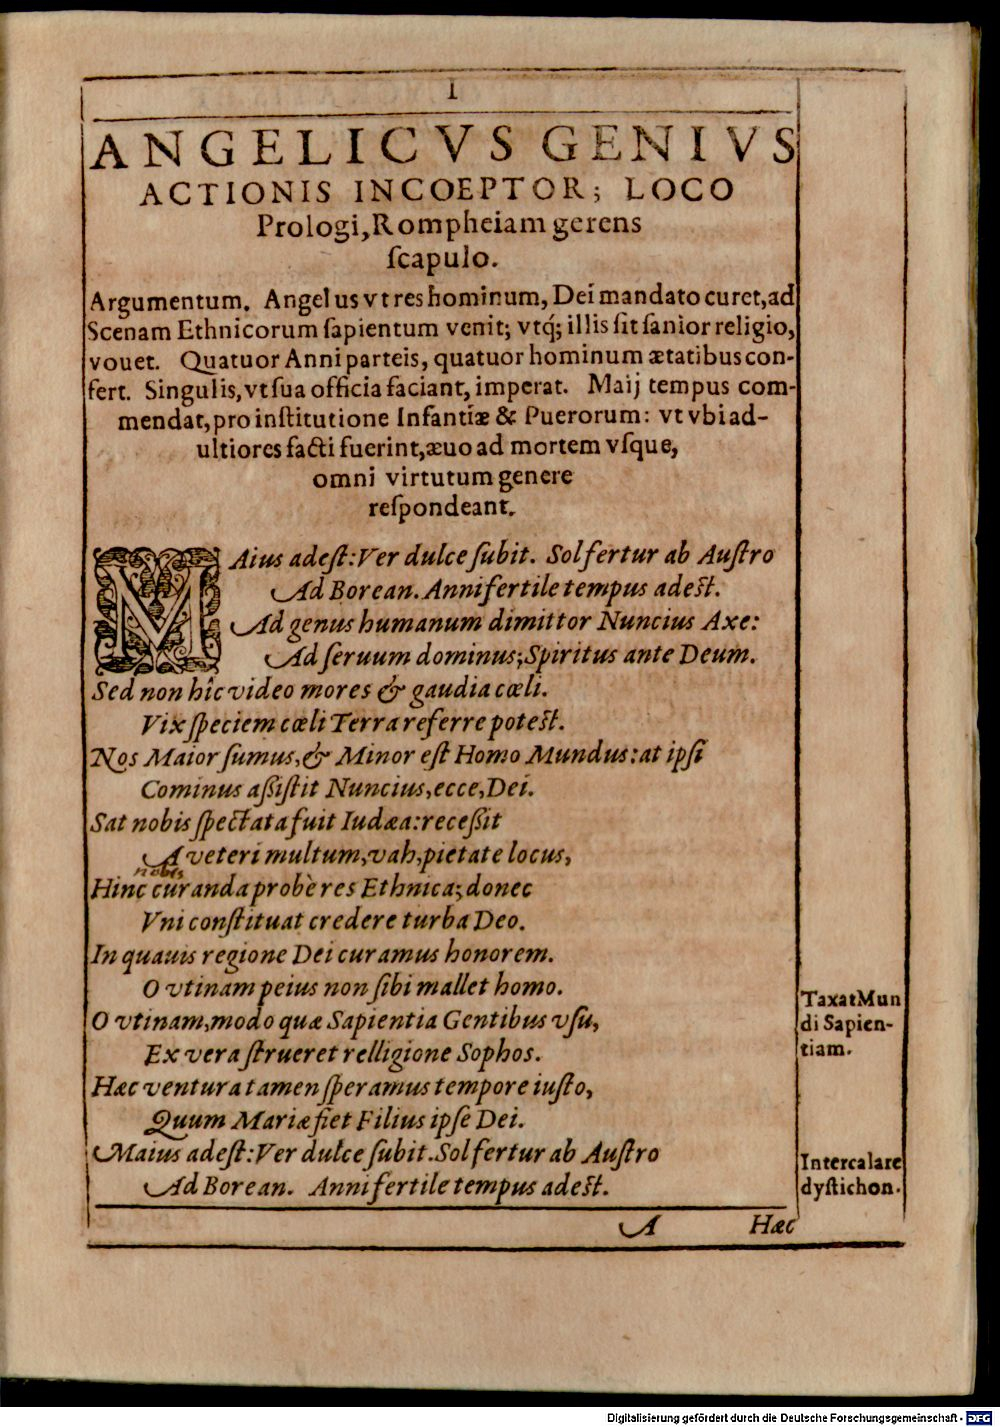 I
ANGELICVS GENIVS
ACTIONIS INCOEPTOR; LOCO
Prologi, Rompheiam gerens
ſcapulo.
Argumentum. Angelus vt res hominum, Dei mandato curet, ad
Scenam Ethnicorum ſapientum venit; vtq́; illis ſit ſanior religio,
vouet. Quatuor Anni parteis, quatuor hominum ætatibus con-
fert. Singulis, vt ſua officia faciant, imperat. Maij tempus com-
mendat, pro inſtitutione Infantiæ & Puerorum: vt vbi ad-
ultiores facti fuerint, æuo ad mortem vſque,
omni virtutum genere
reſpondeant.
MAius adeſt: Ver dulce ſubit. Sol fertur ab Auſtro
Ad Borean. Anni fertile tempus adeſt.
Ad genus humanum dimittor Nuncius Axe:
Ad ſeruum dominus; Spiritus ante Deum.
Sed non hîc video mores & gaudia cœli.
Vix ſpeciem cœli Terra referre poteſt.
Nos Maior ſumus, & Minor eſt Homo Mundus: at ipſi
Cominus aſſiſtit Nuncius, ecce, Dei.
Sat nobis ſpectata fuit Iudæa: receſſit
A veteri multum, vah, pietate locus,
nobis
Hinc curanda probè res Ethnica; donec
Vni conſtituat credere turba Deo.
In quauis regione Dei curamus honorem.
O vtinam peius non ſibi mallet homo.
O vtinam, modo quæ Sapientia Gentibus vſu,
Ex vera ſtrueret relligione Sophos.
Hæc ventura tamen ſperamus tempore iuſto,
Quum Mariæ fiet Filius ipſe Dei.
Maius adeſt: Ver dulce ſubit. Sol fertur ab Auſtro
Ad Borean. Anni fertile tempus adeſt.
Taxat Mun
di Sapien-
tiam.
Intercalare
dyſtichon.
A Hæc
Digitalisierung gefördert durch die Deutsche Forschungsgemeinschaft - DFG